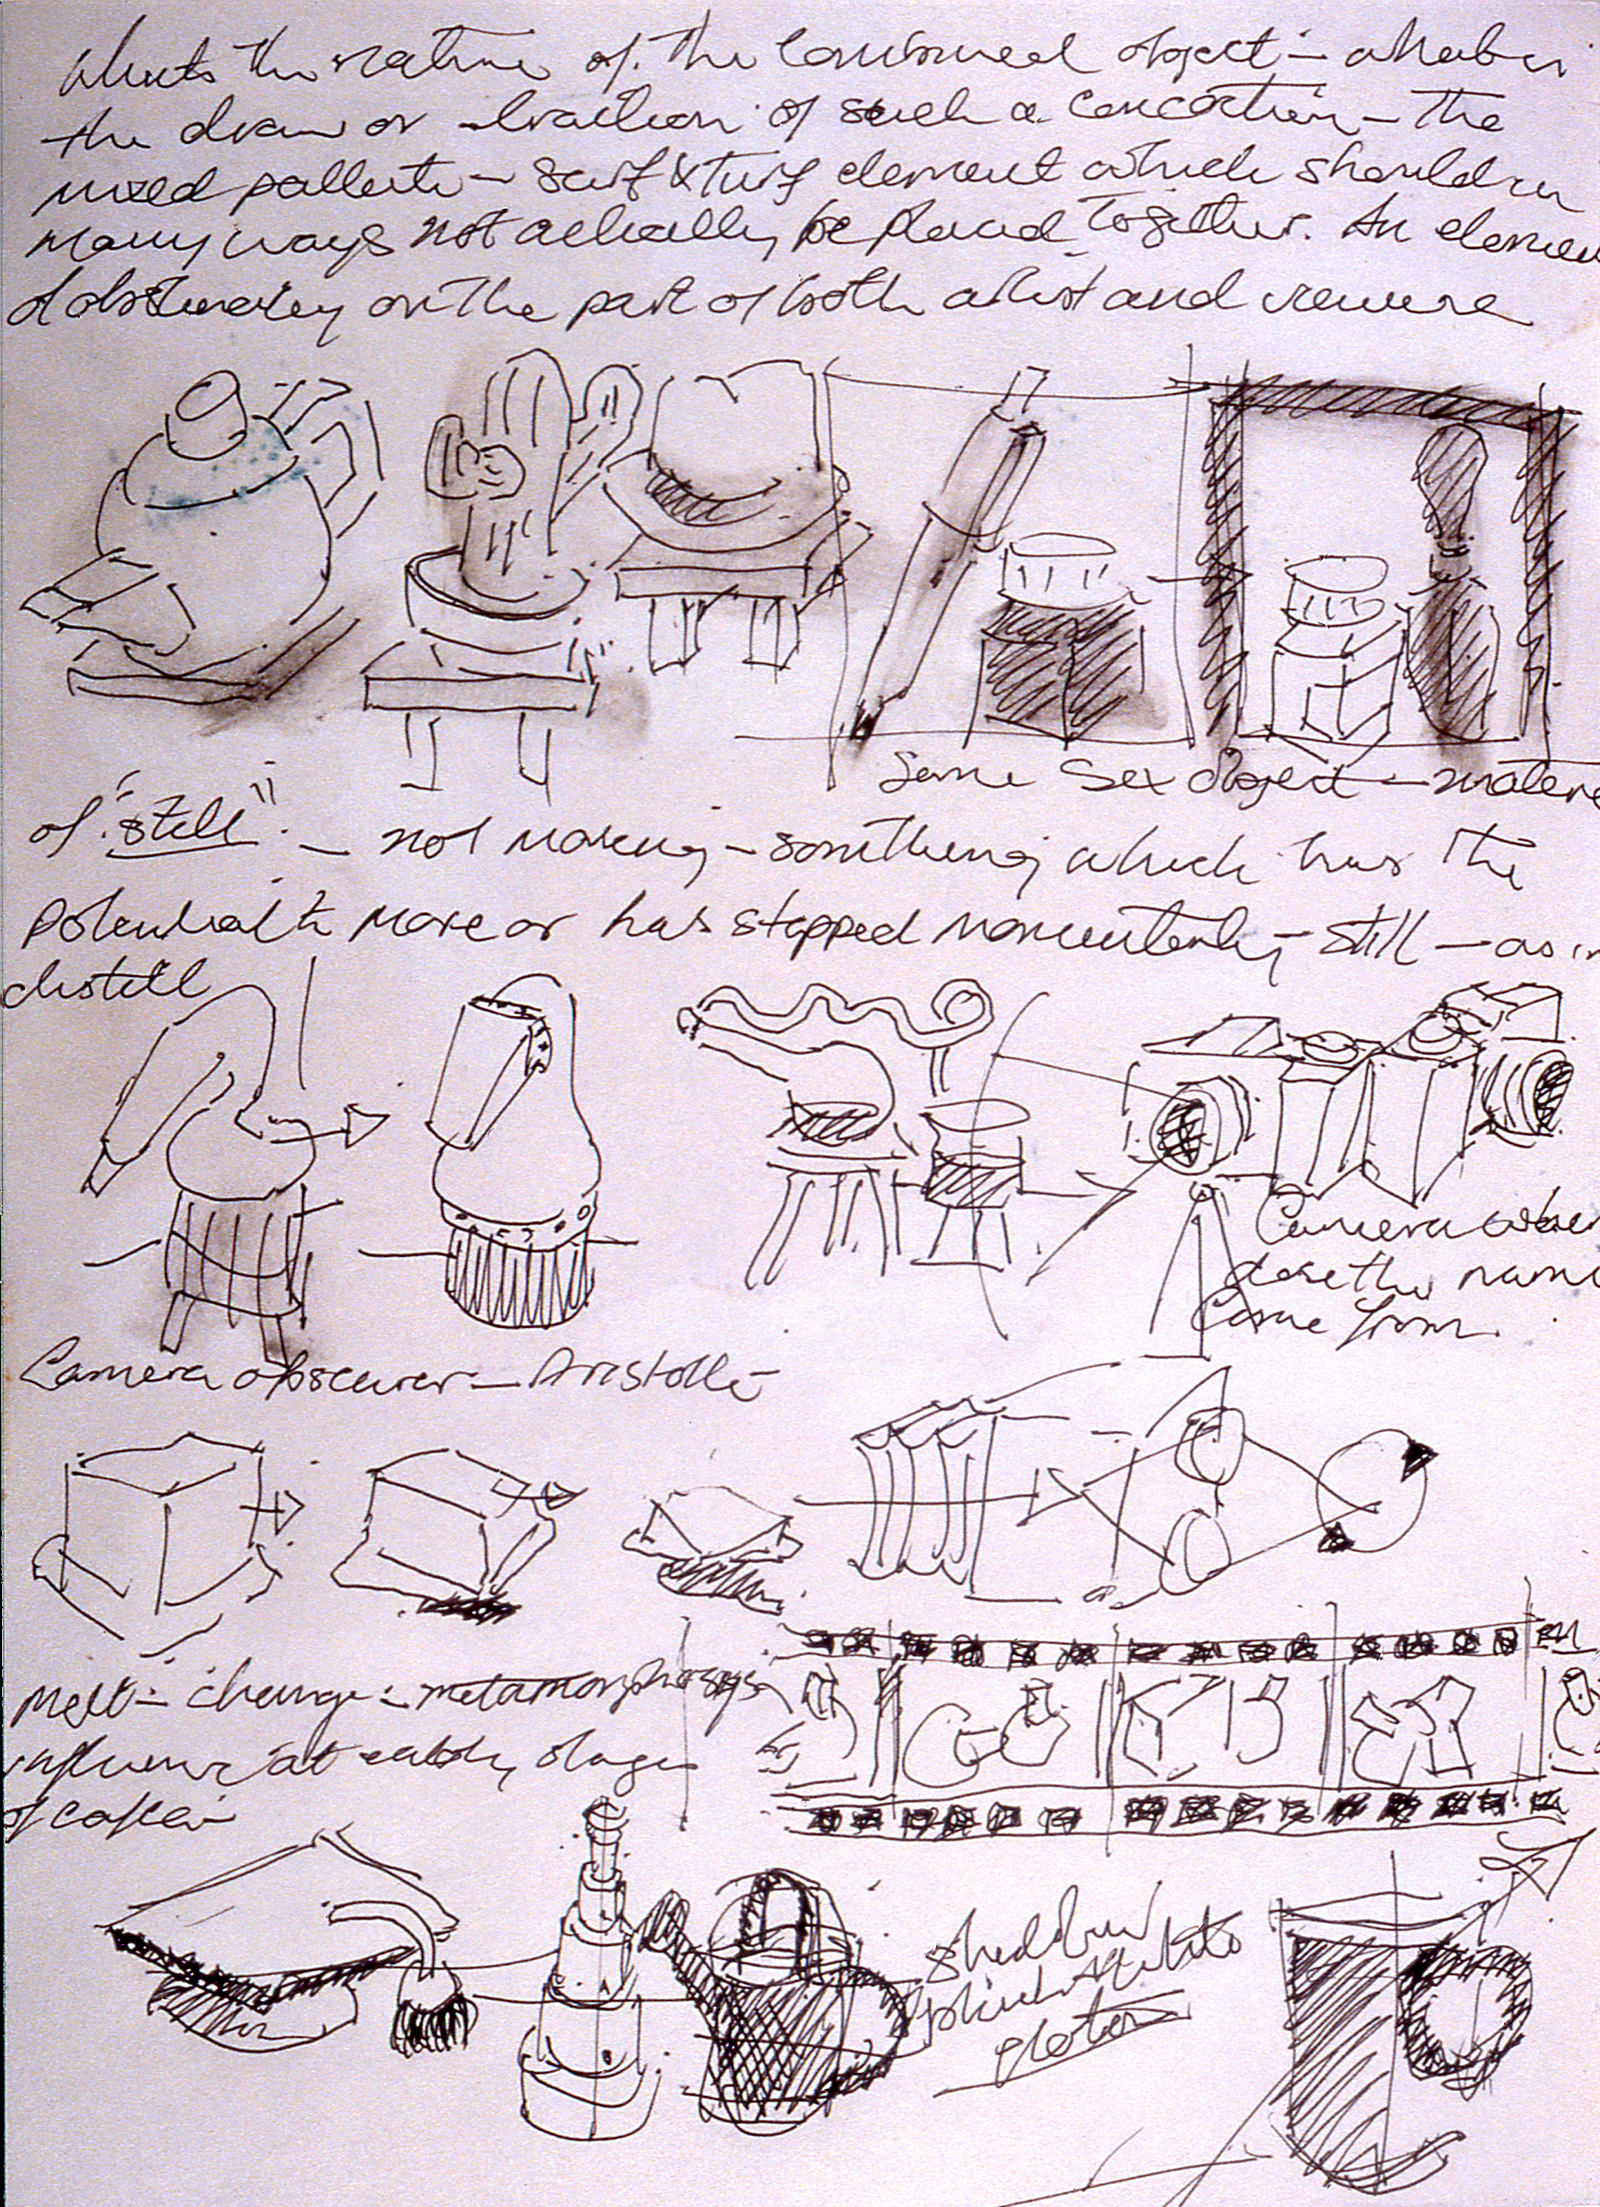 Whats the nature of the combined object – what is
the draw or traction of such a concoction – the
mixed pallette – surf & turf element which should in
many ways not actually be placed together. An elemen
of obstinacy on the part of both artist and
Same Sex Object –
of "still" – not moving – something which has the
Potential to move or has stopped momentarily – still – as in
distill
Camera
does the name
Come from
Camera obscurer – Aristotle –
Melt – change – metamorphosys
influence at early stage
of